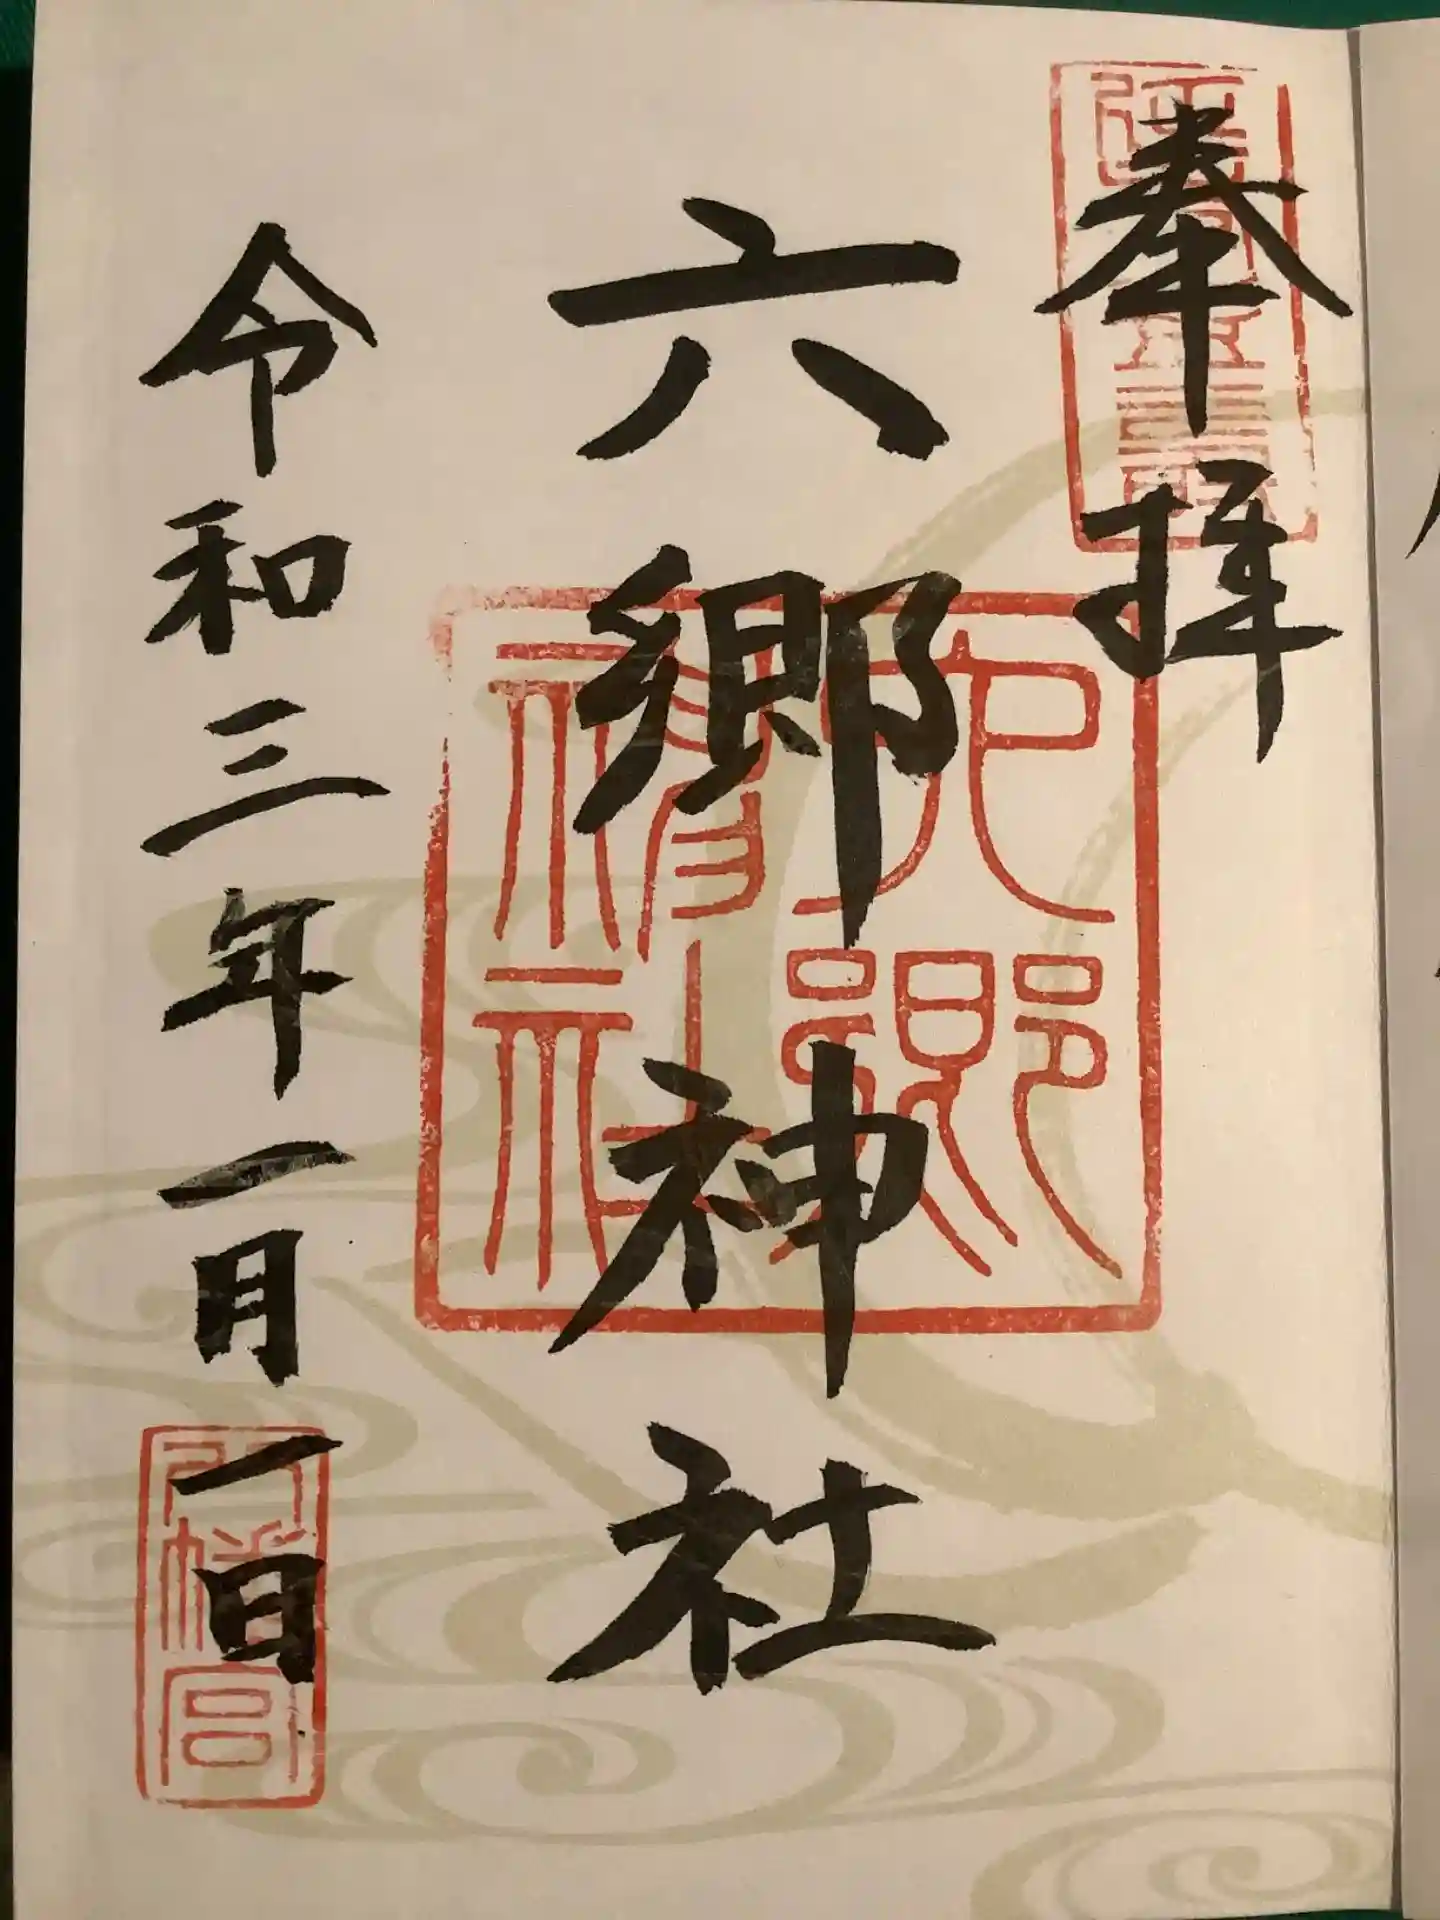 奉拝
六郷神社
六郷神社
令和三年一月一日
八幡宮